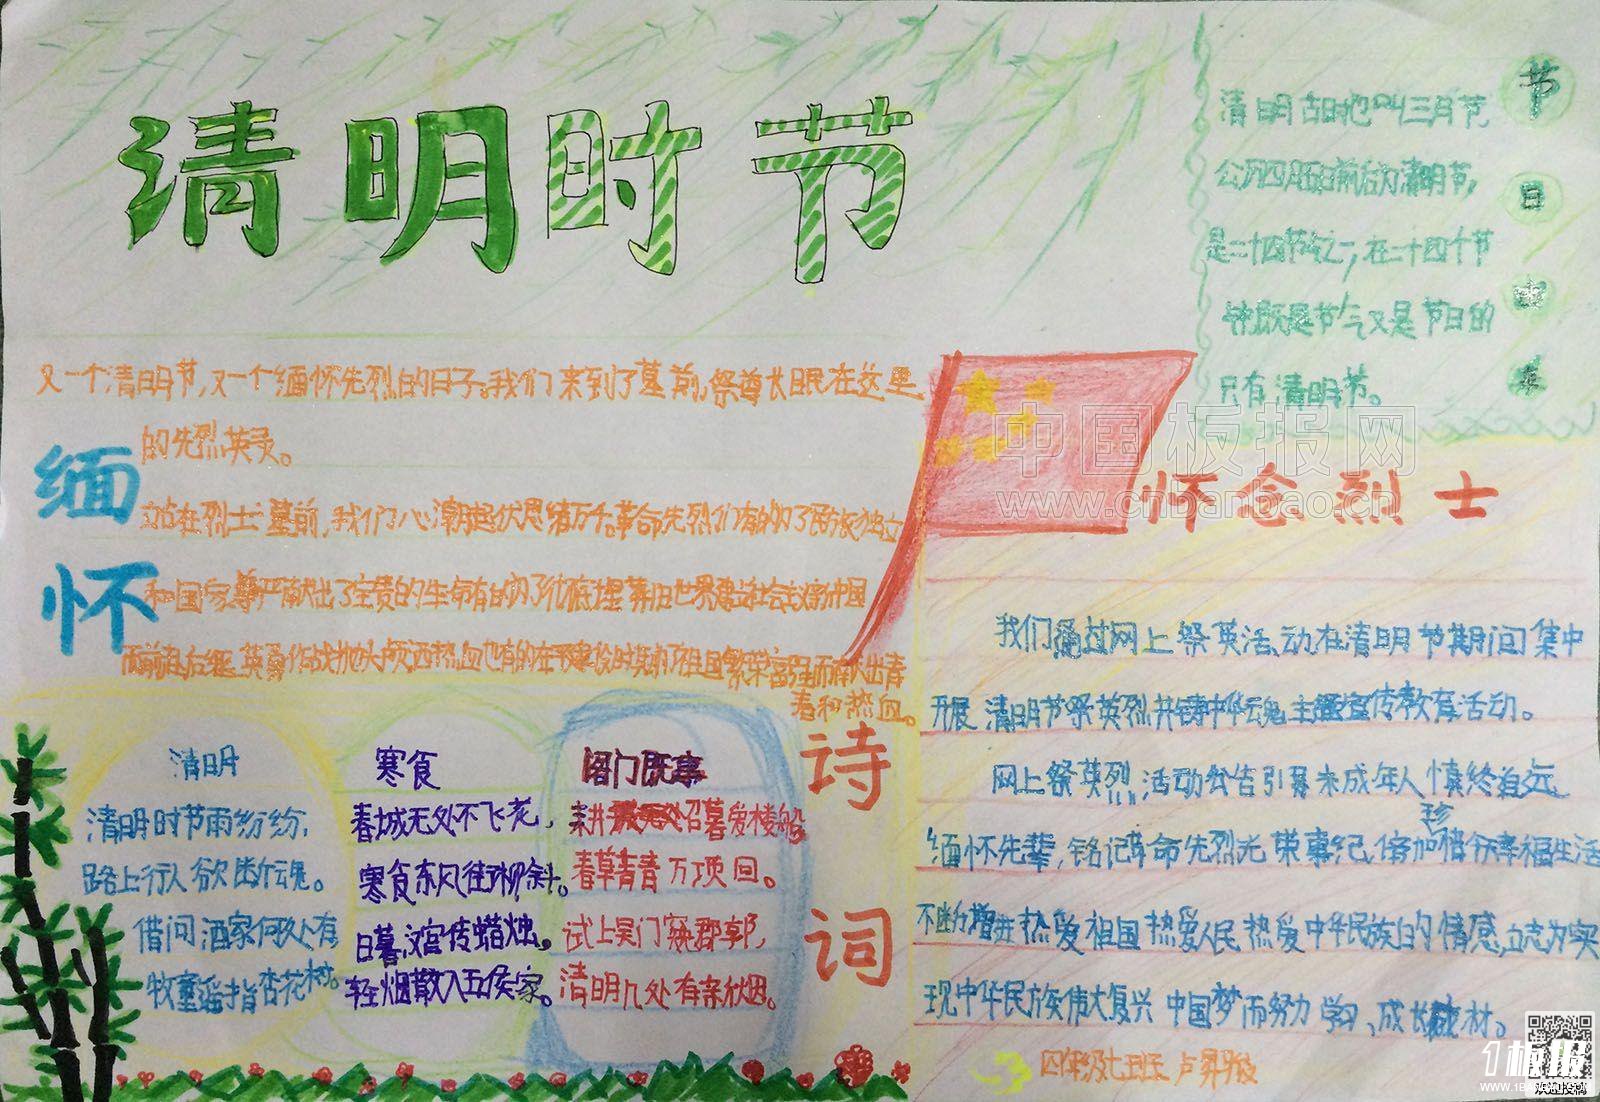 清明时节
节日由来
清明古时也叫三月节
公历四月五日前后为清明节,
是二十四节气之一,在二十四个节
气中既是节气又是节日的
只有清明节。
又一个清明节,又一个缅怀先烈的日子。我们来到了墓前,祭奠长眠在这里
的先烈英灵。
缅怀
站在烈士墓前,我们心潮起伏思绪万千。革命先烈们有的为了民族独立
和国家尊严献出了宝贵的生命有的为了彻底埋葬旧世界建设社会主义新中国
而前赴后继 英勇作战抛头颅洒热血也有的在和平建设时期为了祖国繁荣富强而献出青
春和热血。
怀念烈士
我们通过网上祭英活动在清明节期间集中
开展清明节祭英烈共铸中华魂主题宣传教育活动。
网上祭英烈活动公告引导未成年人慎终追远
缅怀先辈,铭记革命先烈光荣事纪,倍加珍惜今天幸福生活
不断增进热爱祖国热爱人民热爱中华民族的情感,立志为实
现中华民族伟大复兴中国梦而努力学习、成长成材。
诗词
清明
清明时节雨纷纷,
路上行人欲断魂。
借问酒家何处有
牧童遥指杏花村。
寒食
春城无处不飞花,
寒食东风往柳斜。
日暮汉宫传蜡烛。
轻烟散入五侯家。
阊门既事
耕 召暮爱楼船
春草青青万顷回。
试上吴门窥郡郭,
清明几处有亲伙因。
四年级七班 卢昇
中国板报网
www.cnbanbao.cn
1板报
WWW.1BANBAO.COM
欢迎投稿